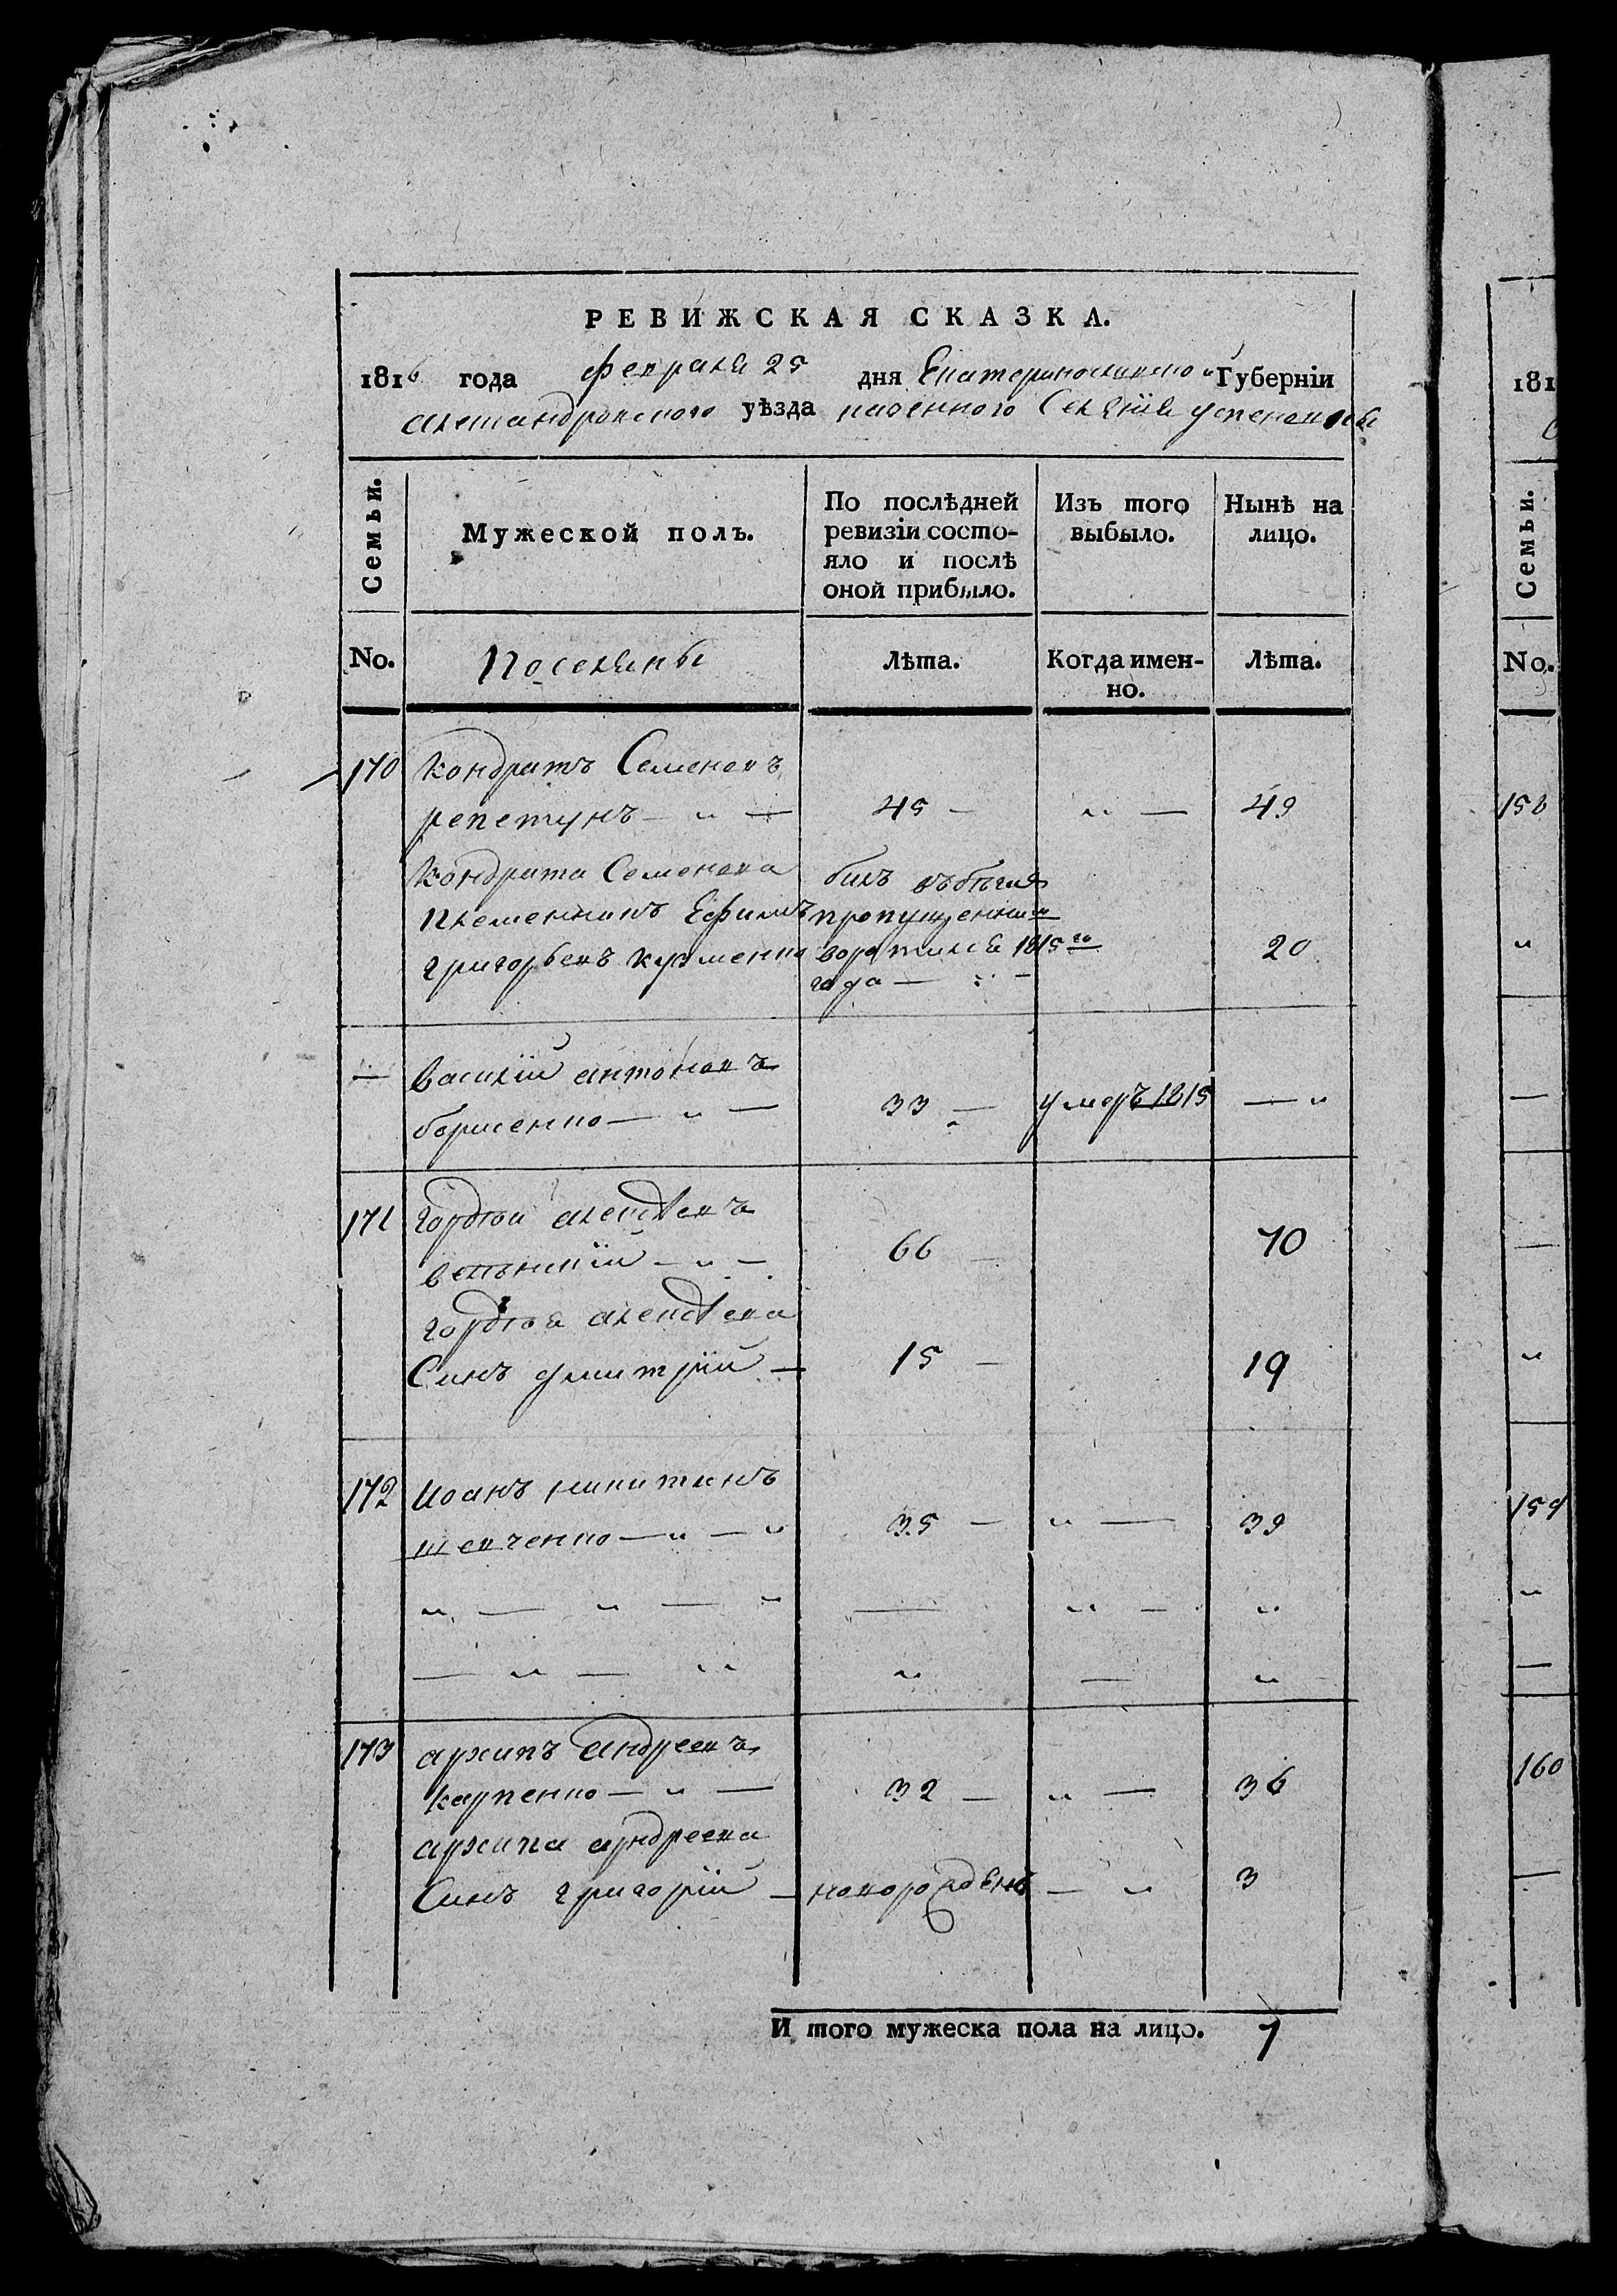 РЕВИЖСКАЯ СКАЗКА.
1816 года февраля 25 дня Екатеринославской Губерніи
александровского уѣзда казенного Селенія успеновки
Семьи. Мужеской полъ. По послѣдней ревизіи состо-яло и послѣ оной прибыло. Изъ того выбыло. Нынѣ на лицо.
No. Поселяны Лѣта. Когда имен-но. Лѣта.
170 Кондратъ Семеновъ
репетунъ — „ — 45 — „ — 49
Кондрата Семенова билъ въбѣгах
племенникъ Ефимъ пропущенним
григорьевъ кузменко воротился 1815го 20
года —
— василій антоновъ
борисенко — „ — 33 — умеръ 1815 — „
171 гордѣй алексѣевъ
— „ — 66 — 70
гордѣя алексѣева
Синъ дмитрій — 15 — 19
172 Иоанъ никитинъ
шевченко — „ — „ 35 — „ — 39
„ — „ — „ — „ — „
— „ — „ „ — „
173 архипъ андреевъ
карпенко — „ — 32 — „ — 36
архипа андреева
Синъ григорій — новорожденъ — „ 3
И того мужеска пола на лицо. 7
181
Семьи.
No.
158
„
—
—
—
„
159
„
—
160
—